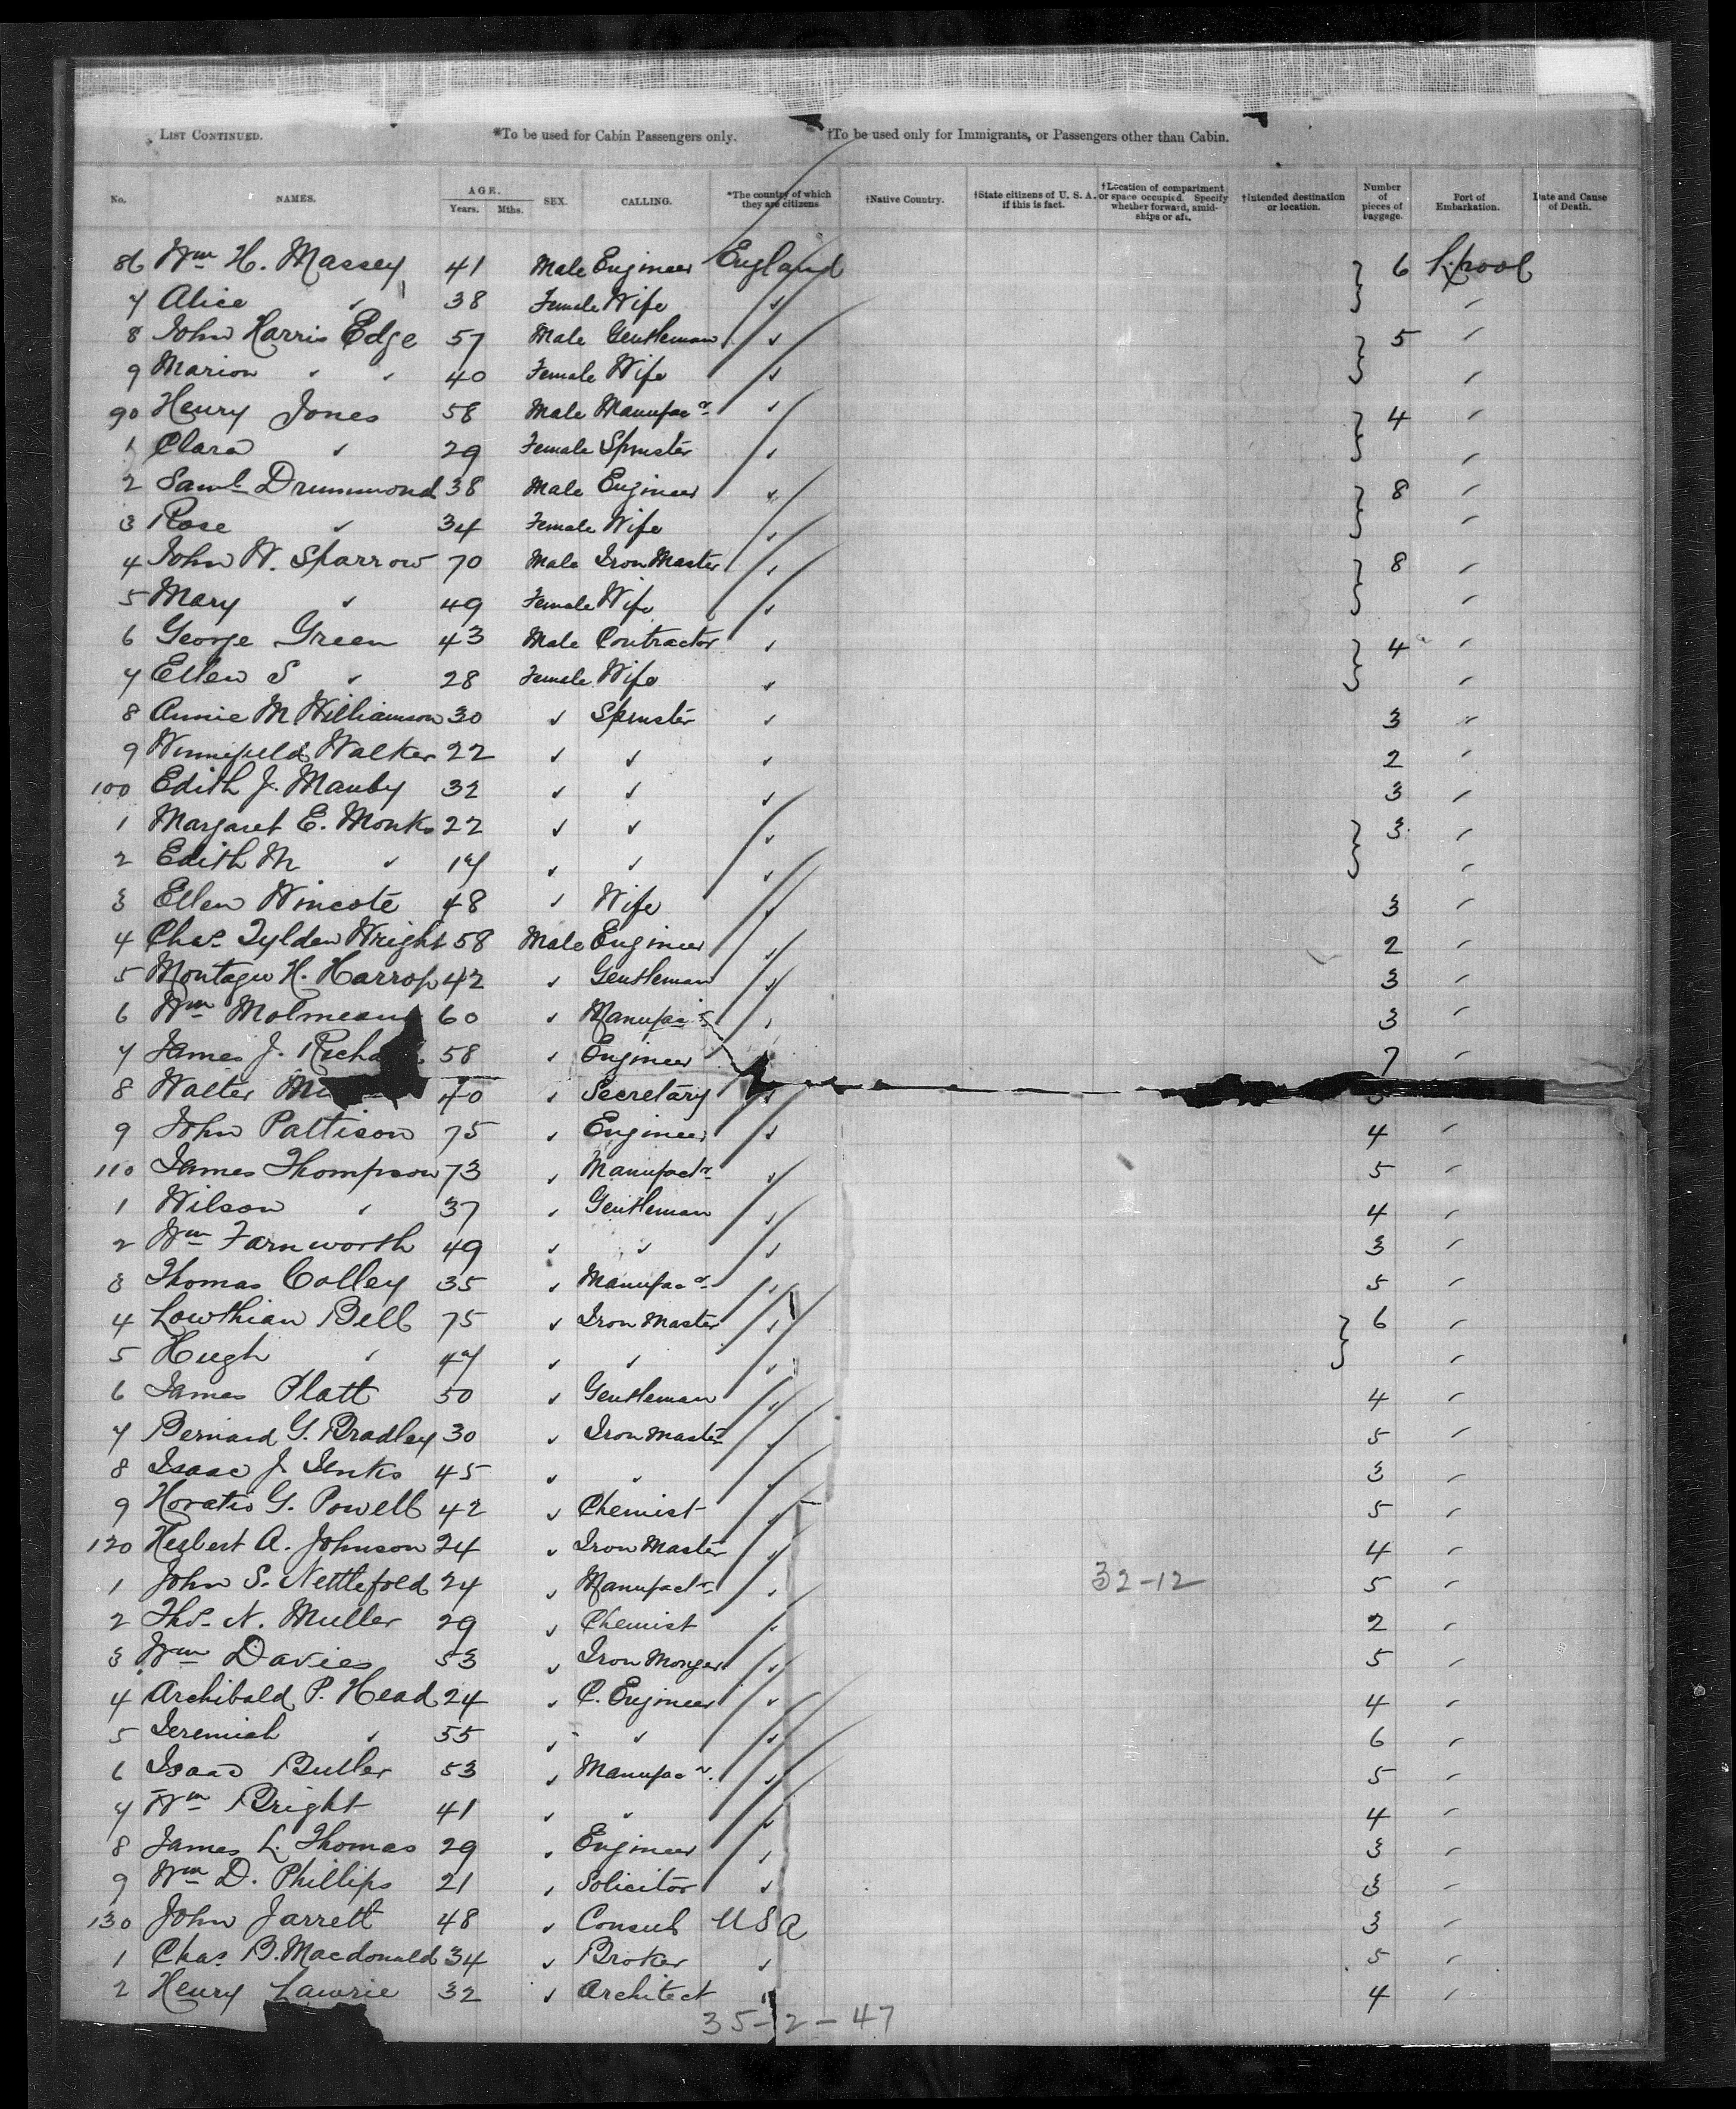 LIST CONTINUED. *To be used for Cabin Passengers only. †To be used only for Immigrants, or Passengers other than Cabin.
No. NAMES. AGE. Years. Mths. SEX. CALLING. *The country of which they are citizens †Native Country. †State citizens of U. S. A. if this is fact. †Location of compartment or space occupied. Specify whether forward, amidships or aft. †Intended destination or location. Number of pieces of baggage. Port of Embarkation. Date and Cause of Death.
86 Wm H. Massey 41 Male Engineer England 6 L'pool
7 Alice " 38 Female Wife " "
8 John Harris Edge 57 Male Gentleman " 5 "
9 Marion " " 40 Female Wife " "
90 Henry Jones 58 Male Manufacr " 4 "
1 Clara " 29 Female Spinster " "
2 Saml Drummond 38 Male Engineer " 8 "
3 Rose " 34 Female Wife " "
4 John W. Sparrow 70 Male Iron Master " 8 "
5 Mary " 49 Female Wife " "
6 George Green 43 Male Contractor " 4 "
7 Ellen S " 28 Female Wife " "
8 Annie M Williamson 30 " Spinster " 3 "
9 Winnefield Walker 22 " " " 2 "
100 Edith J. Manby 32 " " " 3 "
1 Margaret E. Monks 22 " " " 3 "
2 Edith M " 17 " " " "
3 Ellen Wincote 48 " Wife " 3 "
4 Chas. Tylden Wright 58 Male Engineer " 2 "
5 Montague H. Harrop 42 " Gentleman " 3 "
6 Wm 60 " Manufacr " 3 "
7 James J. 58 " Engineer 7 "
8 Walter 40 " Secretary "
9 John Pattison 75 " Engineer " 4 "
110 James Thompson 73 " Manufactr " 5 "
1 Wilson " 37 " Gentleman " 4 "
2 Wm Farnworth 49 " " " 3 "
3 Thomas Colley 35 " Manufacr " 5 "
4 Lowthian Bell 75 " Iron Master " 6 "
5 Hugh " 47 " " " "
6 James Platt 50 " Gentleman " 4 "
7 Bernard G. Bradley 30 " Iron Master " 5 "
8 Isaac J. Jenks 45 " " " 3 "
9 Horatio G. Powell 42 " Chemist " 5 "
120 Herbert A. Johnson 24 " Iron Master " 4 "
1 John S. Nettlefold 24 " Manufactr " 32-12 5 "
2 Thos. N. Muller 29 " Chemist " 2 "
3 Wm Davies 53 " Iron Monger " 5 "
4 Archibald P. Head 24 " C. Engineer " 4 "
5 Jeremiah " 55 " " " 6 "
6 Isaac Butler 53 " Manufacr. " 5 "
7 Wm Bright 41 " " " 4 "
8 James L. Thomas 29 " Engineer " 3 "
9 Wm D. Phillips 21 " Solicitor " 3 "
130 John Jarrett 48 " Consul USA 3 "
1 Chas. B. Macdonald 34 " Broker " 5 "
2 Henry Lawrie 32 " Architect " 4 "
35-2-47